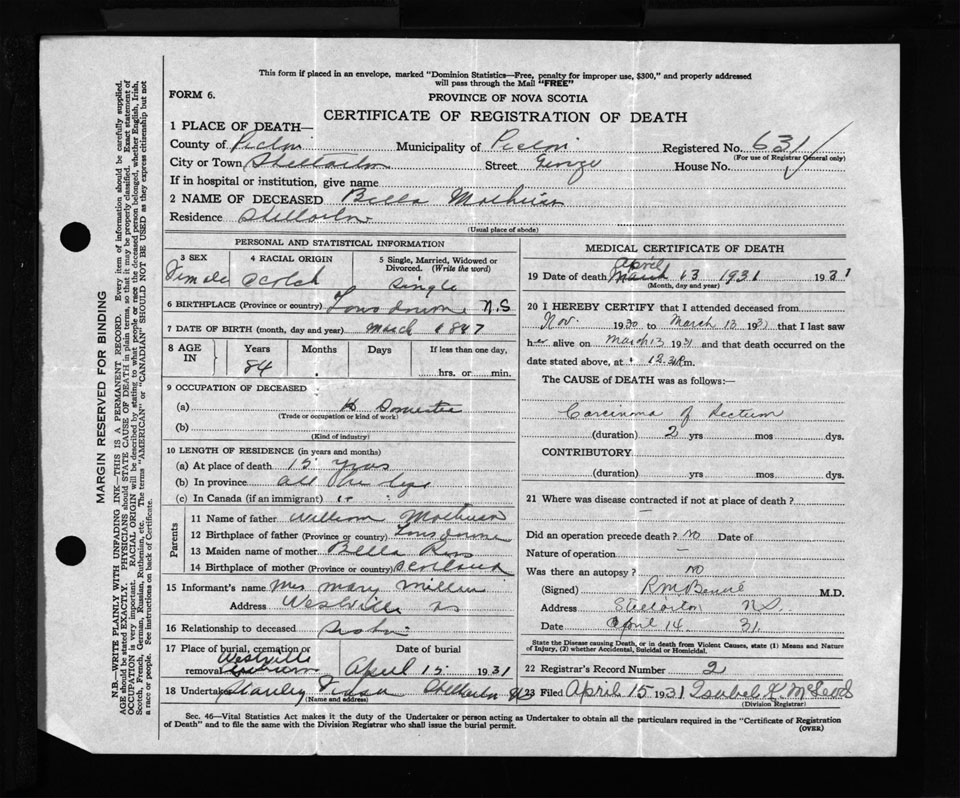 This form if placed in an envelope, marked "Dominion Statistics—Free, penalty for improper use, $300," and properly addressed
will pass through the Mail "FREE"
FORM 6.
PROVINCE OF NOVA SCOTIA
CERTIFICATE OF REGISTRATION OF DEATH
1 PLACE OF DEATH—
County of Pictou Municipality of Pictou Registered No. 631
(For use of Registrar General only)
City or Town Stellarton Street George House No.
If in hospital or institution, give name
2 NAME OF DECEASED Bella
Residence Stellarton
(Usual place of abode)
PERSONAL AND STATISTICAL INFORMATION
3 SEX 4 RACIAL ORIGIN 5 Single, Married, Widowed or
Divorced. (Write the word)
Female Scotch Single
6 BIRTHPLACE (Province or country) Lonsdowne N.S
7 DATE OF BIRTH (month, day and year) March 1847
8 AGE IN Years Months Days If less than one day,
84 hrs. or min.
9 OCCUPATION OF DECEASED
(a) Domestic
(Trade or occupation or kind of work)
(b)
(Kind of industry)
10 LENGTH OF RESIDENCE (in years and months)
(a) At place of death 15 years
(b) In province all her life
(c) In Canada (if an immigrant)
Parents
11 Name of father William
12 Birthplace of father (Province or country) Lonsdowne
13 Maiden name of mother Bella Ross
14 Birthplace of mother (Province or country) Scotland
15 Informant's name Mrs Mary Miller
Address Westville NS
16 Relationship to deceased
17 Place of burial, cremation or Date of burial
removal Westville April 15 1931
18 Undertaker Stanley Stellarton
(Name and address)
MEDICAL CERTIFICATE OF DEATH
April
19 Date of death March 13 1931 1931
(Month, day and year)
20 I HEREBY CERTIFY that I attended deceased from
Nov. 1930 to March 13 1931 that I last saw
her alive on March 13 1931 and that death occurred on the
date stated above, at 12.30 P.m.
The CAUSE of DEATH was as follows:—
Carcinoma of Rectum
(duration) 2 yrs mos dys.
CONTRIBUTORY
(duration) yrs mos dys.
21 Where was disease contracted if not at place of death?
—
Did an operation precede death? No Date of
Nature of operation —
Was there an autopsy? No
(Signed) M.D.
Address Stellarton N.S.
Date April 14 31.
State the Disease causing Death, or in death from Violent Causes, state (1) Means and Nature
of Injury, (2) whether Accidental, Suicidal or Homicidal.
22 Registrar's Record Number 2
23 Filed April 15 1931 Isabel K McLeod
(Division Registrar)
Sec. 46—Vital Statistics Act makes it the duty of the Undertaker or person acting as Undertaker to obtain all the particulars required in the "Certificate of Registration
of Death" and to file the same with the Division Registrar who shall issue the burial permit.
(OVER)
MARGIN RESERVED FOR BINDING
N.B.—WRITE PLAINLY WITH UNFADING INK—THIS IS A PERMANENT RECORD. Every item of information should be carefully supplied.
AGE should be stated EXACTLY. PHYSICIANS should STATE CAUSE OF DEATH in plain terms, so that it may be properly classified. Exact statement of
OCCUPATION is very important. RACIAL ORIGIN will be described by stating to what people or race the deceased person belonged, whether English, Irish,
Scotch, French, German, Russian, Ruthenian, etc. The terms "AMERICAN" or "CANADIAN" SHOULD NOT BE USED as they express citizenship but not
a race or people. See instructions on back of Certificate.